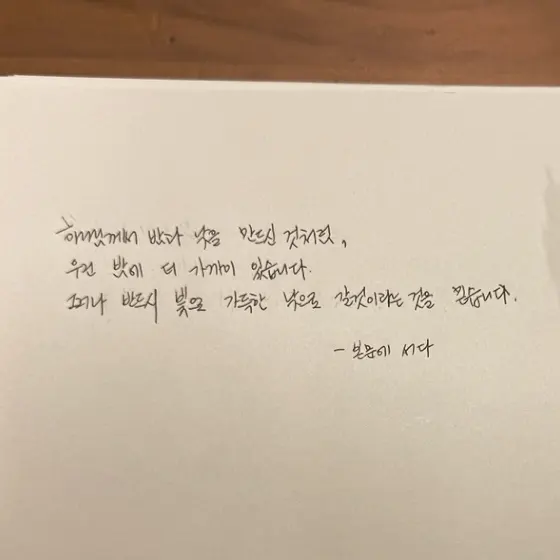 하나님께서 밤과 낮을 만드신 것처럼,
우린 밤에 더 가까이 있습니다.
그러나 반드시 빛으로 가득한 낮으로 갈것이라는 것을 믿습니다.
- 본문에 서다